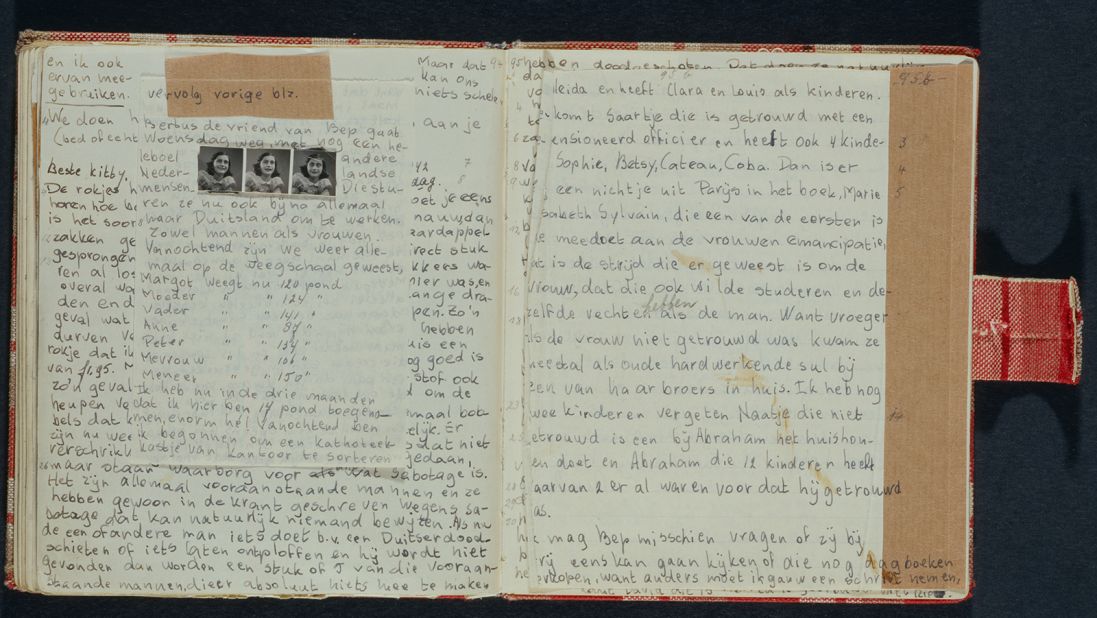 en ik ook
ervan mee-
gebruiken.
"We doen h
(bed of echt
Beste Kitty,
De rokjes h
horen hoe be
is het soor
zakken ge
gesprongen
ren al los
overal wa
den end
geval wat
durven ve
rokje dat ik
van ƒ1,95. M
zo'n geval
heupen ve
bels dat k
zijn nu wee
verschrikl
maar staan waarborg voor als wat sabotage is.
Het zijn allemaal vooraanstaande mannen en ze
hebben gewoon in de krant geschreven wegens sa-
botage, dat kan natuurlijk niemand bewijzen. Als nu
de een of andere man iets doet b.v. een Duitser dood-
schieten of iets laten ontploffen en hij wordt niet
gevonden dan worden een stuk of 5 van die vooraan-
staande mannen, die er absoluut niets mee te maken
vervolg vorige blz.
Bertus de vriend van Bep gaat
Woensdag weg, met nog een he-
leboel andere
Neder- landse
mensen. De stu-
ren ze nu ook bijna allemaal
naar Duitsland om te werken.
Zowel mannen als vrouwen.
Vanochtend zijn we weer alle-
maal op de weegschaal geweest,
Margot weegt nu 120 pond
Moeder " " 124 "
Vader " " 141 "
Anne " " 87 "
Peter " " 134 "
Mevrouw " " 106 "
Meneer " " 150 "
Ik heb nu in de drie maanden
dat ik hier ben 17 pond toegeno-
men, enorm hè! Vanochtend ben
ik begonnen om een kathoteek-
kastje van kantoor te sorteren
Maar dat
kan ons
niets schele
aan je
7
8
dag.
oet je eens
nauw dan
aardappel
irect stuk
kkers wa-
hier was, en
ange dra-
pen. Zo'n
hebben
uis een
og goed is
stof ook
om de
maal bob-
elijk. Er
s dat niet
gedaan,
95
hebben doodgeschoten.
95b
95b-
lleida en heeft Clara en Louis als kinderen.
komt Saartje die is getrouwd met een
ensioneerd officier en heeft ook 4 kinde-
3
Sophie, Betsy, Cateau, Coba. Dan is er
4
een nichtje uit Parijs in het boek, Marie
5
isabeth Sylvain, die een van de eersten is
ie meedoet aan de vrouwen emancipatie,
at is de strijd die er geweest is om de
vrouw, dat die ook wilde studeren en de-
hebben
zelfde rechten als de man. Want vroeger
als de vrouw niet getrouwd was kwam ze
meestal als oude hardwerkende sul bij
een van haar broers in huis. Ik heb nog
wee kinderen vergeten Naatje die niet
etrouwd is een bij Abraham het huishou-
en doet en Abraham die 12 kinderen heeft
aarvan 2 er al waren voor dat hij getrouwd
as.
k mag Bep misschien vragen of zij bij
rij eens kan gaan kijken of die nog dagboeken
erkopen, want anders moet ik gauw een schrift nemen,